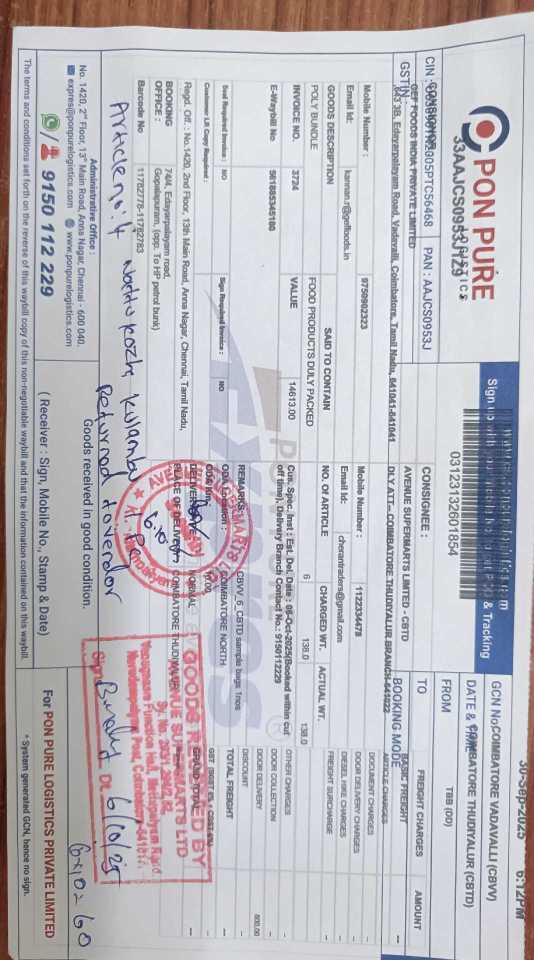 PON PURE
LOGISTICS
33AAJCS0953J1Z9
CIN :
PAN : AAJCS0953J
GSTIN
CONSIGNOR
GEF FOODS INDIA PRIVATE LIMITED
Edayarpalayam Road, Vadavalli, Coimbatore, Tamil Nadu, 641041-641041
Mobile Number :
9750902323
Email Id:
kannan.r@geffoods.in
GOODS DESCRIPTION
SAID TO CONTAIN
POLY BUNDLE
FOOD PRODUCTS DULY PACKED
INVOICE NO.
VALUE
3724
14613.00
E-Waybill No
581885345180
Seal Required Invoice : NO
Sign Required Invoice : NO
Customer LR Copy Required :
Regd. Off. : No.1420, 2nd Floor, 13th Main Road, Anna Nagar, Chennai, Tamil Nadu,
BOOKING OFFICE :
74/4, Edayarpalayam road,
Gopalapuram, (opp. To HP petrol bunk)
Barcode No
11782778-11782783
Sign up with & Tracking
03123132601854
CONSIGNEE :
AVENUE SUPERMARTS LIMITED - CBTD
DLY AT:- COIMBATORE THUDIYALUR BRANCH-641022
Mobile Number :
1122334478
Email Id:
cherantraders@gmail.com
NO. Of ARTICLE
CHARGED WT.
ACTUAL WT.
6
138.0
138.0
Cus. Spec. Inst : Est. Del. Date : 06-Oct-2025(Booked within cut
off time), Delivery Branch Contact No.: 9150112229
REMARKS : CBVV_6_CBTD sample bags 1nos
COIMBATORE NORTH
NORMAL
PLACE OF DELIVERY : COIMBATORE THUDIYALUR
30-Sep-2025 6:12PM
GCN No
COIMBATORE VADAVALLI (CBVV)
DATE & TIME
COIMBATORE THUDIYALUR (CBTD)
FROM
TO
TBB (DD)
BOOKING MODE
FREIGHT CHARGES
AMOUNT
BASIC FREIGHT --
ARTICLE CHARGES
DOCUMENT CHARGES
DOOR DELIVERY CHARGES
DIESEL HIKE CHARGES
FREIGHT SURCHARGE
OTHER CHARGES
DOOR COLLECTION
DOOR DELIVERY
DISCOUNT
TOTAL FREIGHT
GRAND TOTAL
GOODS RECEIVED BY
AVENUE SUPERMARTS LTD
Article no: 4 Nattu kozhi kulambu
returned to vendor
6/10/25
Goods received in good condition.
Administrative Office :
No. 1420, 2nd Floor, 13th Main Road, Anna Nagar, Chennai - 600 040.
express@ponpurelogistics.com www.ponpurelogistics.com
9150 112 229
( Receiver : Sign, Mobile No., Stamp & Date)
For PON PURE LOGISTICS PRIVATE LIMITED
The terms and conditions set forth on the reverse of this waybill copy of this non-negotiable waybill and that the information contained on this waybill
* System generated GCN, hence no sign.